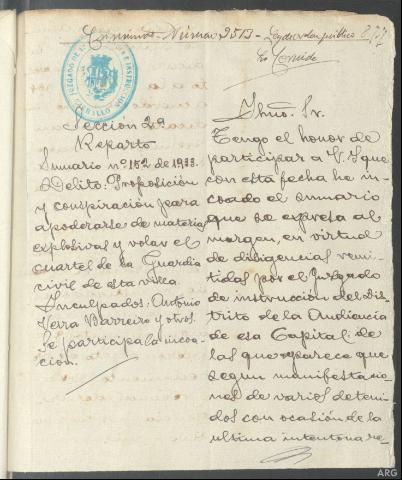 Número 2513 - Ley de orden público
JUZGADO DE
INSTRUCCION
CARBALLO
Sección 2ª
Reparto
Sumario nº 152 de 1933.
Delito: Proposición
y conspiración para
apoderarse de materia
explosivas y volar el
cuartel de la Guardia
civil de esta villa.
Inculpados: Antonio
Barreiro y otros.
Se participa la incoa-
ción.
Ilmo. Sr.
Tengo el honor de
participar a V.I. que
con esta fecha he in-
coado el sumario
que se expresa al
margen, en virtud
de diligencias remi-
tidas por el Juzgado
de instrucción del Dis-
trito de la Audiencia
de esa Capital: de
las que aparece que
segun manifestacio-
nes de varios deteni-
dos con ocasión de la
ultima intentona re-
ARG